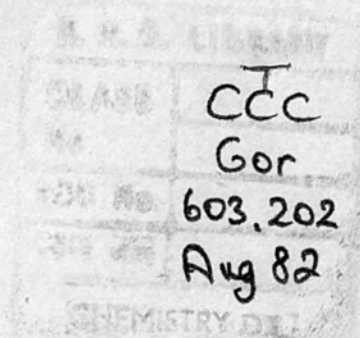 LIBRARY
CLASS
T
CCC
Gor
603.202
Aug 82
CHEMISTRY